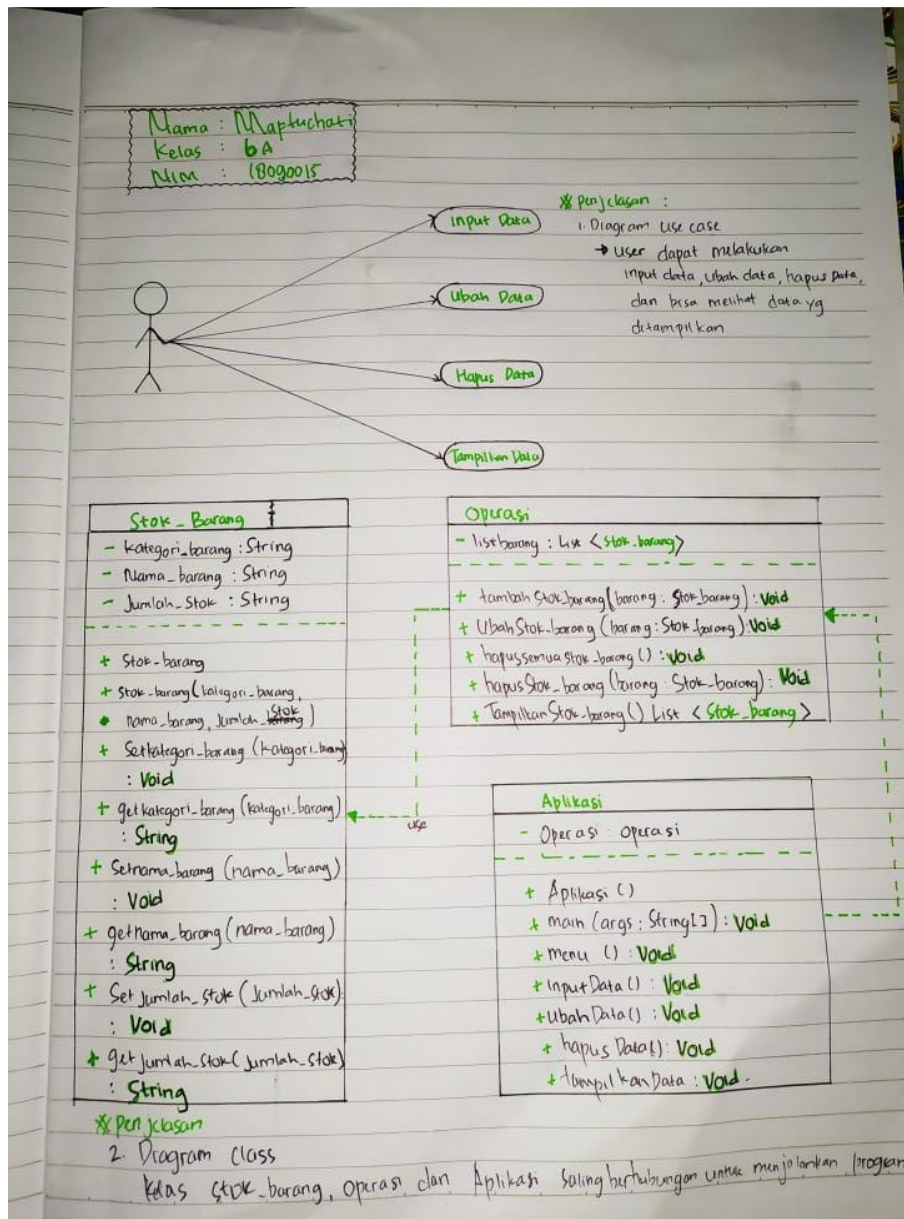 Nama : Maptuchati
Kelas : 6A
NIM : 18090015
Input Data
Ubah Data
Hapus Data
Tampilkan Data
※ Penjelasan :
1. Diagram use case
→ user dapat melakukan
input data, ubah data, hapus data,
dan bisa melihat data yg
ditampilkan
Stok_Barang
- Kategori_barang : String
- Nama_barang : String
- Jumlah_Stok : String
+ Stok_barang
+ Stok_barang (kategori_barang,
nama_barang, Jumlah_Stok)
+ Setkategori_barang (kategori_barang)
: Void
+ getkategori_barang (kategori_barang)
: String
+ Setnama_barang (nama_barang)
: Void
+ getnama_barang (nama_barang)
: String
+ Set Jumlah_Stok (Jumlah_Stok)
: Void
+ get Jumlah_Stok (Jumlah_Stok)
: String
use
Operasi
- listbarang : List <Stok_barang>
+ tambah Stok_barang (barang : Stok_barang) : Void
+ Ubah Stok_barang (barang : Stok_barang) : Void
+ hapussemua Stok_barang () : Void
+ hapus Stok_barang (barang : Stok_barang) : Void
+ Tampilkan Stok_barang () List <Stok_barang>
Aplikasi
- Operasi operasi
+ Aplikasi ()
+ main (args : String[]) : Void
+ menu () : Void
+ input Data () : Void
+ ubah Data () : Void
+ hapus Data () : Void
+ tampilkan Data : Void.
※ Penjelasan
2. Diagram class
Kelas stok_barang, Operasi dan Aplikasi saling berhubungan untuk menjalankan program